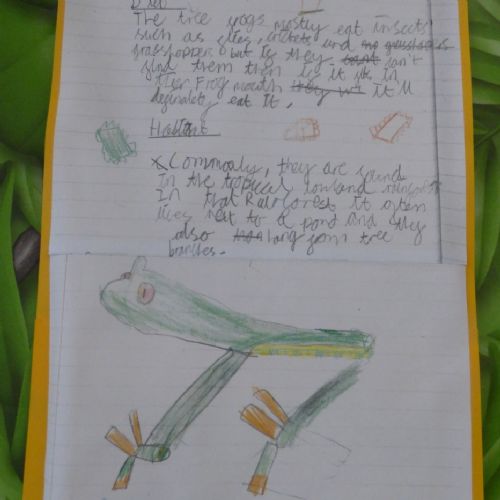 Diet
The tree frogs mostly eat insects
such as flies, crickets and
grasshopper, but If they can't
find them then If it fits in
frog mouth it'll
eat It.
Habitat
Commonly, they are found
In the tropical lowland rainforest
In that Rainforest it often
lives next to a pond and they
also hang from tree
branches.